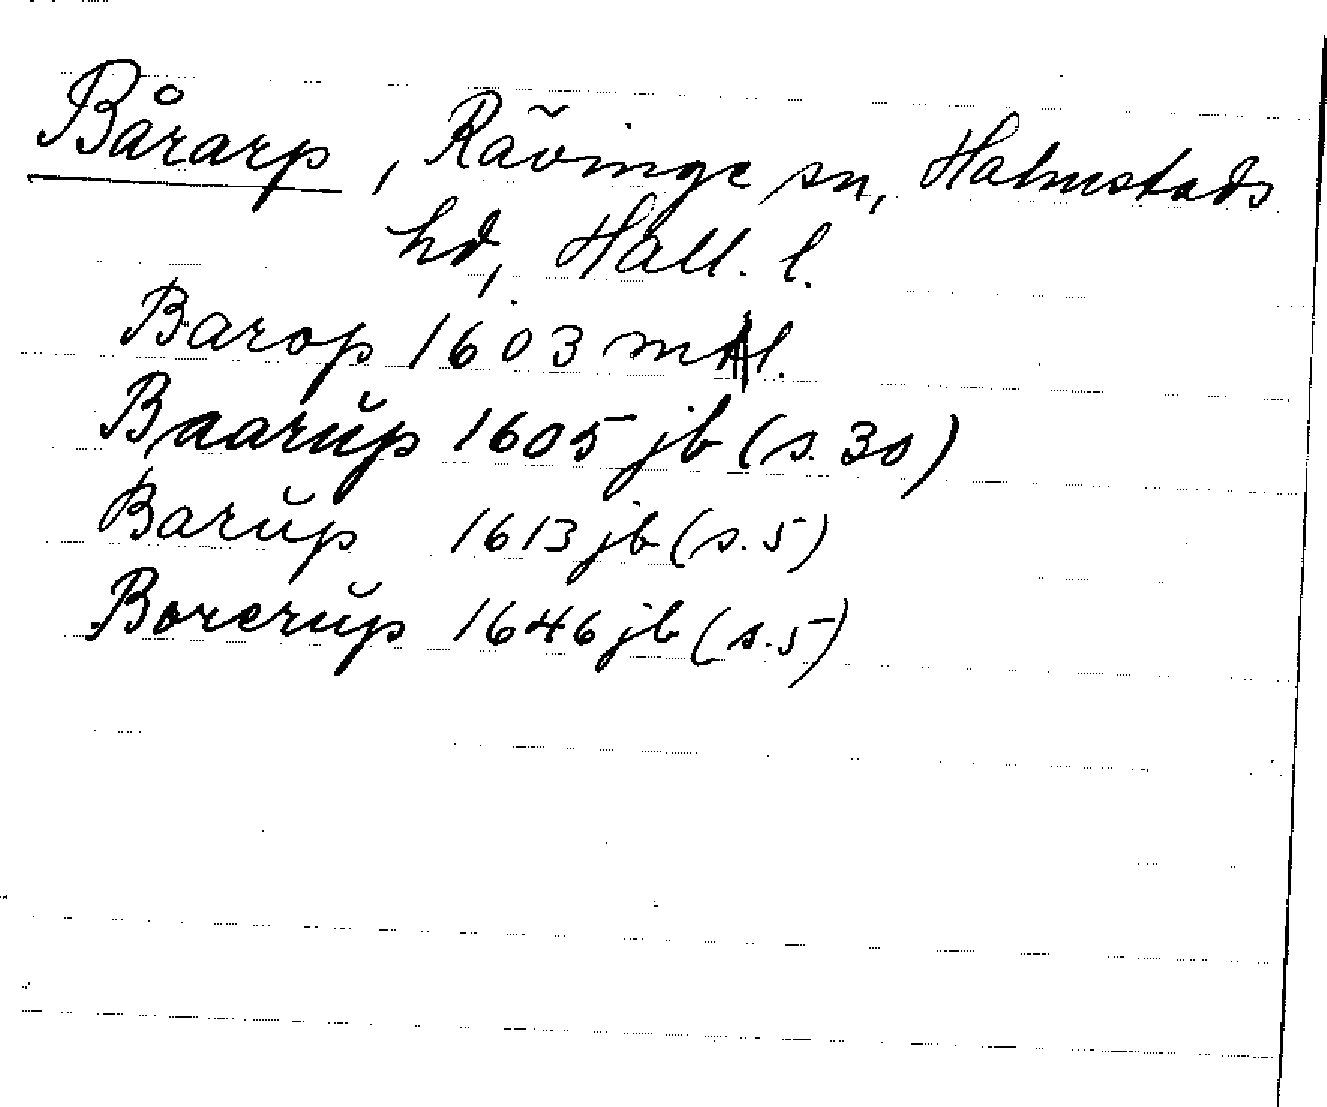 Bårarp, Rävinge sn, Halmstads
hd, Hall. l.
Barop 1603 mtl.
Baarŭp 1605 jb (s. 30)
Barŭp 1613 jb (s. 5)
Borerŭp 1646 jb (s. 5)